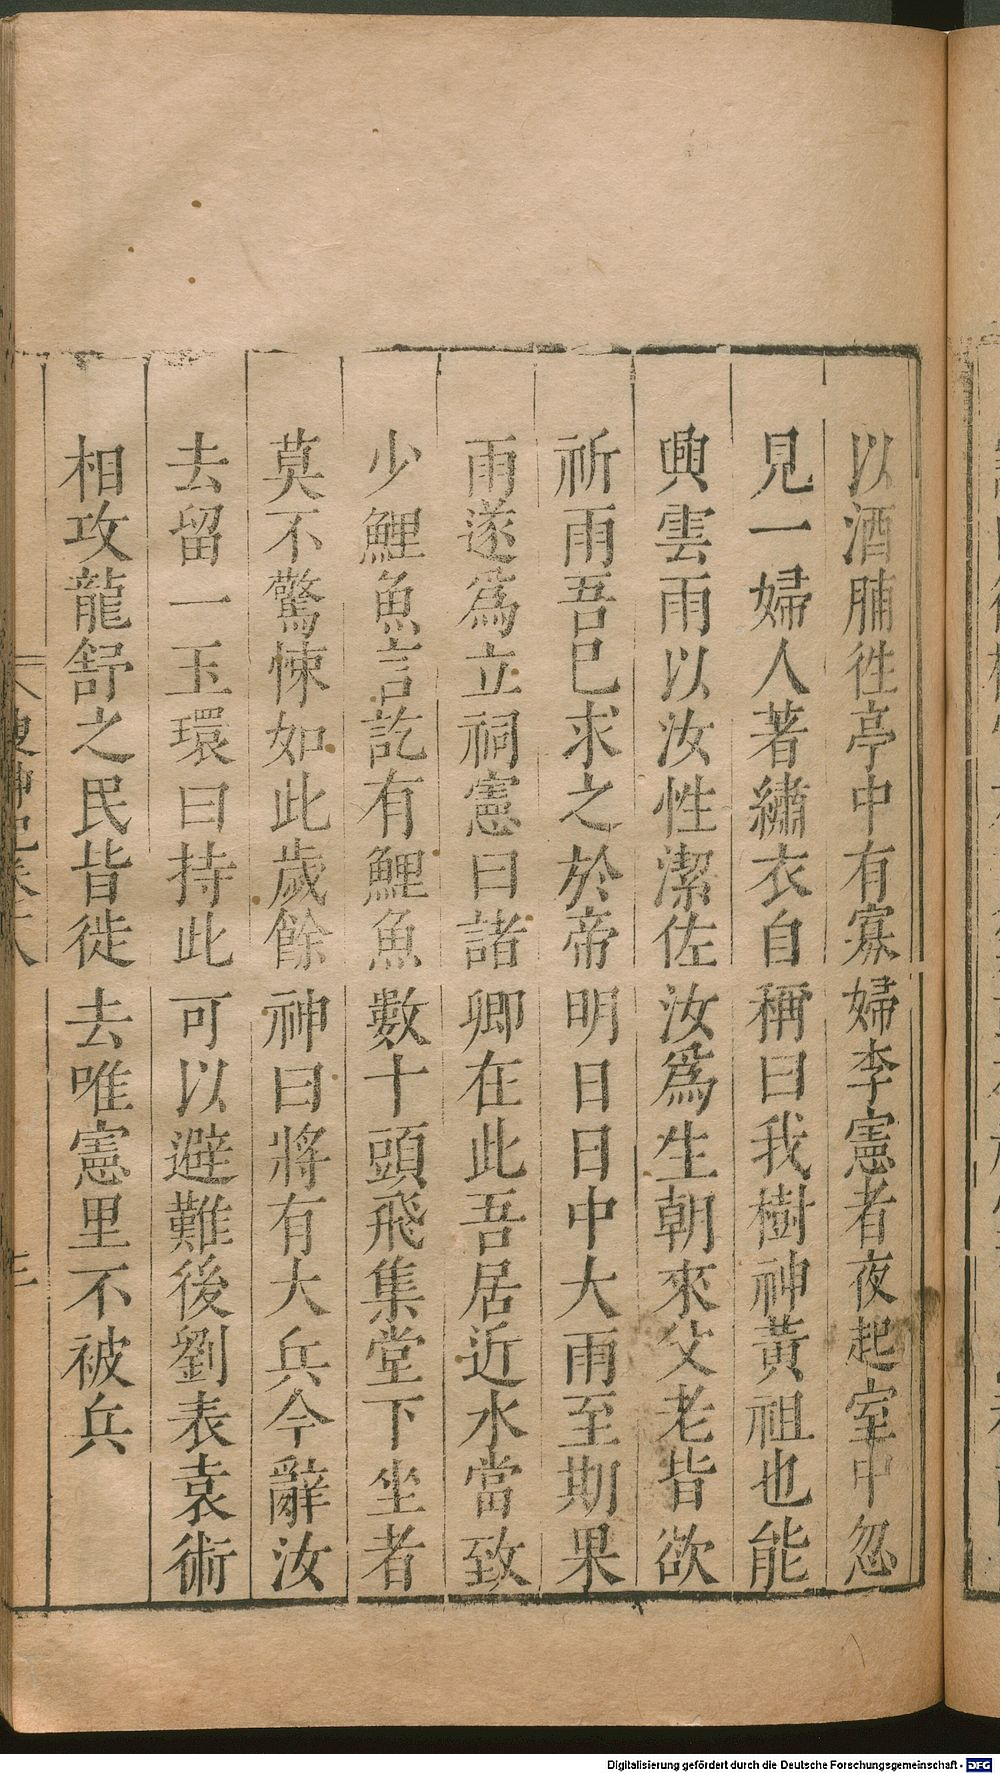 以酒脯徃亭中有寡婦李憲者夜起室中忽
見一婦人著繡衣自稱曰我樹神黃祖也能
興雲雨以汝性潔佐汝爲生朝來父老皆欲
祈雨吾已求之於帝明日日中大雨至期果
雨遂爲立祠憲曰諸卿在此吾居近水當致
少鯉魚言訖有鯉魚數十頭飛集堂下坐者
莫不驚悚如此歲餘神曰將有大兵今辭汝
去留一玉環曰持此可以避難後劉表袁術
相攻龍舒之民皆徙去唯憲里不被兵
Digitalisierung gefördert durch die Deutsche Forschungsgemeinschaft - DFG